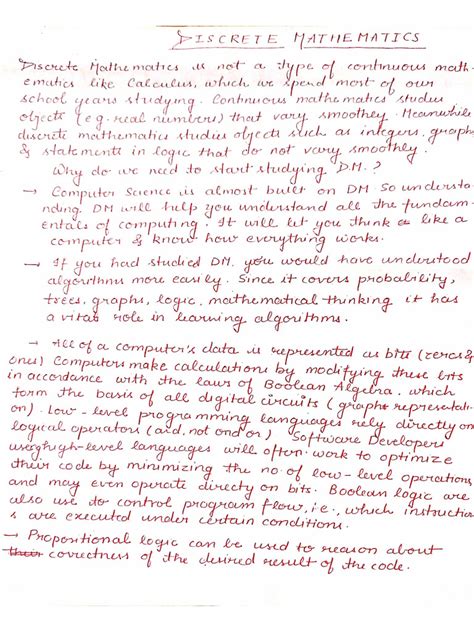 DISCRETE MATHEMATICS
Discrete Mathematics is not a type of continuous math-
ematics like Calculus, which we spend most of our
school years studying. Continuous mathematics studies
objects (e.g. real numbers) that vary smoothly. Meanwhile
discrete mathematics studies objects such as integers, graphs
& statements in logic that do not vary smoothly.
Why do we need to start studying D.M.?
→ Computer Science is almost built on DM. So understa-
nding DM will help you understand all the fundam-
entals of computing. It will let you think like a
computer & know how everything works.
→ If you had studied DM, you would have understood
algorithms more easily. Since it covers probability,
trees, graphs, logic, mathematical thinking it has
a vital role in learning algorithms.
→ All of a computer's data is represented as bits (zeroes &
ones) Computers make calculations by modifying these bits
in accordance with the laws of Boolean Algebra. which
form the basis of all digital circuits (graphs representati-
on). Low-level programming languages rely directly on
logical operators (and, not and or) Software Developers
using high-level languages will often work to optimize
their code by minimizing the no. of low-level operations,
and may even operate directy on bits. Boolean logic are
also use to control program flow, i.e., which instruction
s are executed under certain conditions.
→ Propositional logic can be used to reason about
their correctness of the desired result of the code.